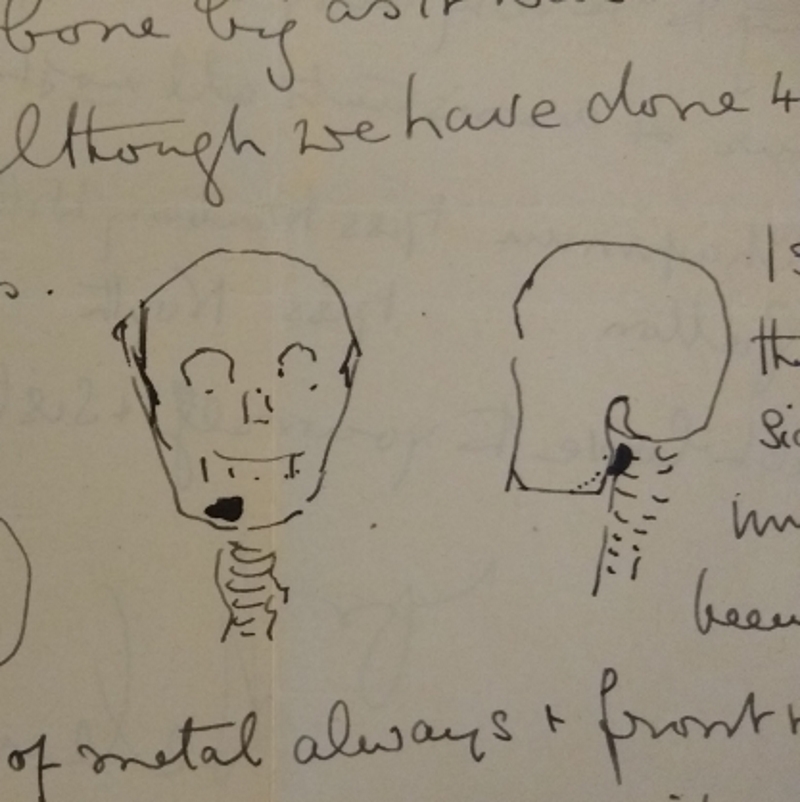 bone big as it
although we have done 4
s.
Is
the
sid
im
been
of metal always + front +